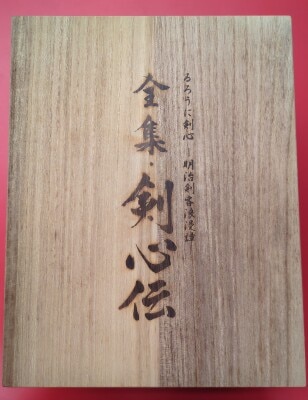 るろうに剣心 ─明治剣客浪漫譚
全集・剣心伝